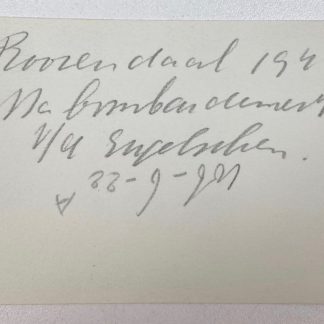 Roosendaal 194
Na bombardement
v/d Engelschen.